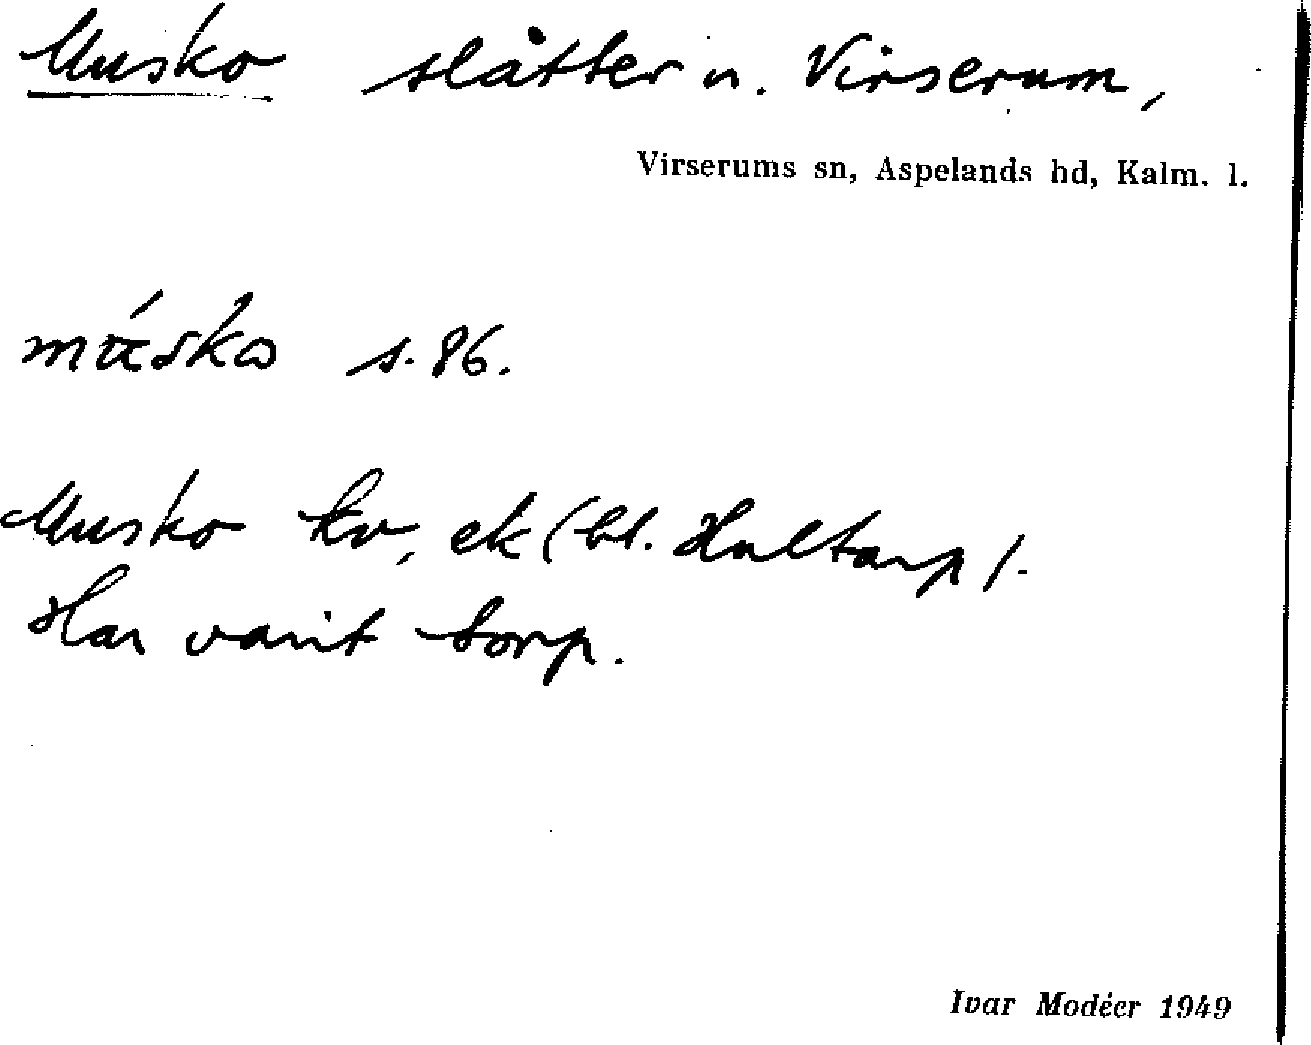 Musko slåtter u. Virserum,
Virserums sn, Aspelands hd, Kalm. l.
s. 86.
Musko kv, ek (bl. Hultarp).
Har varit torp.
Ivar Modéer 1949